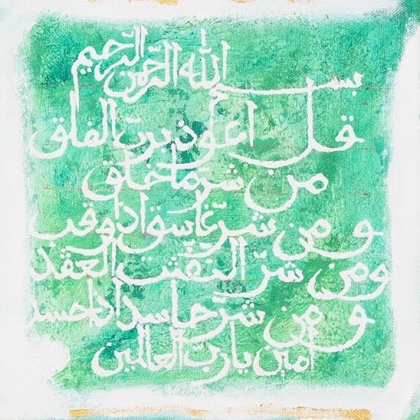 بسم الله الرّحمن الرّحيم
قل اعوذ بربّ الفلق
من شرّ ما خلق
و من شرّ غاسق اذا وقب
و من شرّ النفثت العقد
و من شرّ حاسد اذا حسد
امين يا ربّ العالمين